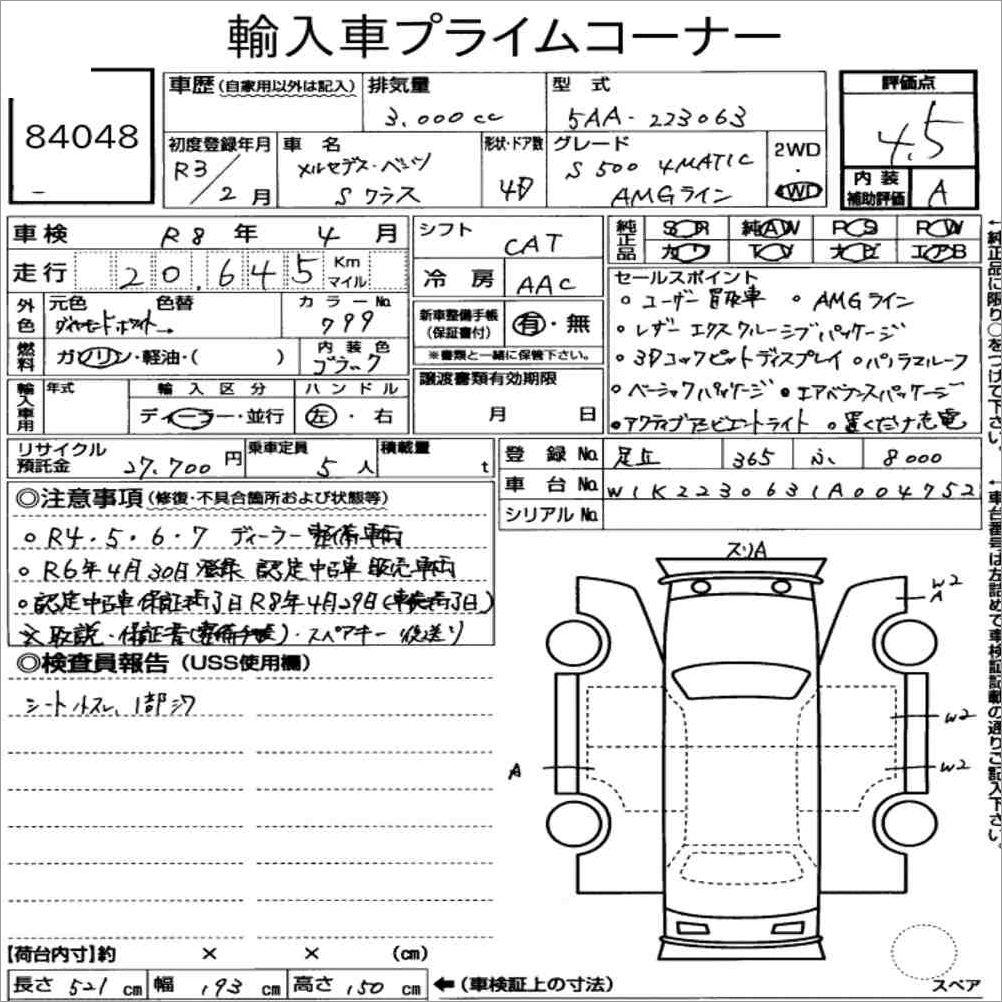 輸入車プライムコーナー
84048
車歴(自家用以外は記入)
排気量
3.000cc
型式
5AA-223063
評価点
4.5
初度登録年月
R3/2月
車名
メルセデス・ベンツ
Sクラス
形状・ドア数
4D
グレード
S500 4MATIC
AMGライン
2WD
・
4WD
内装
補助評価
A
車検 R8年 4月
シフト
CAT
純正品
SR 純AW PS PW
カワ TV ナビ エアB
走行 20.645 Km
マイル
冷房
AAC
セールスポイント
○ユーザー買取車 ○AMGライン
○レザーエクスクルーシブパッケージ
○3Dコックピットディスプレイ ○パノラマルーフ
○ベーシックパッケージ ○エアバランスパッケージ
○アクティブアンビエントライト ○置くだけ充電
外色
元色
色替
ダイヤモンドホワイト→
カラーNo.
799
新車整備手帳
(保証書付)
有・無
※書類と一緒に保管下さい。
燃料
ガソリン・軽油・( )
内装色
ブラック
輸入車用
年式
輸入区分
ディーラー・並行
ハンドル
左・右
譲渡書類有効期限
月 日
リサイクル
預託金
27,700円
乗車定員
5人
積載量
t
登録No.
足立 365 ふ 8000
車台No.
W1K2230631A004752
シリアルNo.
◎注意事項(修復・不具合箇所および状態等)
○R4・5・6・7 ディーラー整備車両
○R6年4月30日登録 認定中古車販売車両
○認定中古車保証残了日R8年4月29日(車検満了日)
※取説・保証書(整備手帳)・スペアキー後送り
◎検査員報告(USS使用欄)
シートスレ、1部シワ
スリA
W2
A
W2
W2
A
↑純正品に限り○をつけて下さい。
↑車台番号は左詰めで車検証記載の通りご記入下さい。
【荷台内寸】約 × × (cm)
長さ 521cm
幅 193cm
高さ 150cm
←(車検証上の寸法)
スペア